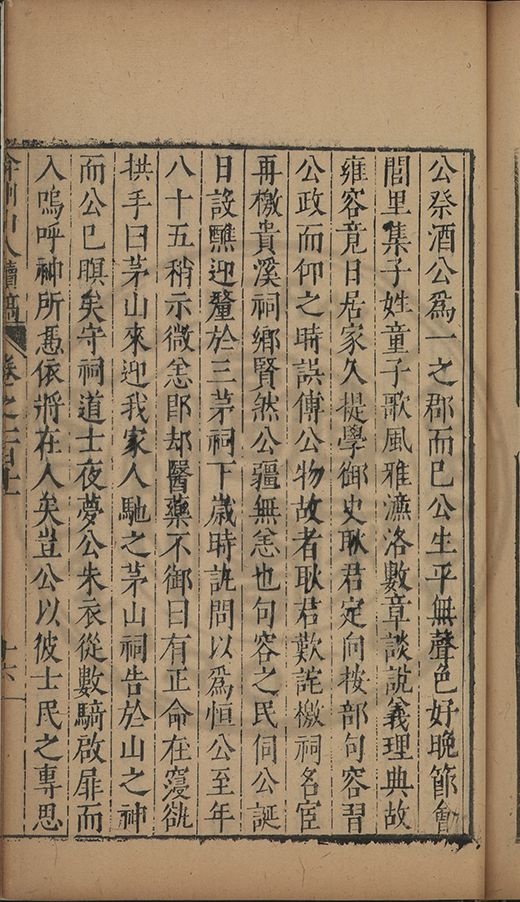 公祭酒公爲一之郡而已公生平無聲色好晚節會
閭里集子姓童子歌風雅濂洛數章談説義理典故
雍容竟日居家久提學御史耿君定向按部句容習
公政而仰之時誤傳公物故者耿君歎詫檄祠名宦
再檄貴溪祠鄉賢然公疆無恙也句容之民伺公誕
日設醮迎釐於三茅祠下歲時訊問以爲恒公至年
八十五稍示微恙卽却醫藥不御曰有正命在寖欲
拱手曰茅山來迎我家人馳之茅山祠告於山之神
而公已暝矣守祠道士夜夢公朱衣從數騎啟扉而
入嗚呼神所憑依將在人矣豈公以彼士民之專思
弇州山人續稿 卷之一百十 十六